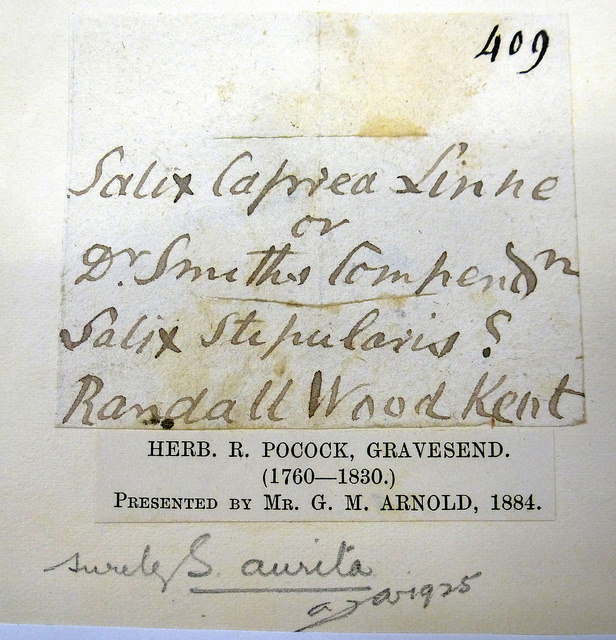 409
Salix Caprea Linne
or
Dr Smiths Compendm
Salix Stipularis?
Randall Wood Kent
HERB. R. POCOCK, GRAVESEND.
(1760—1830.)
PRESENTED BY MR. G. M. ARNOLD, 1884.
surely S. aurita
1925